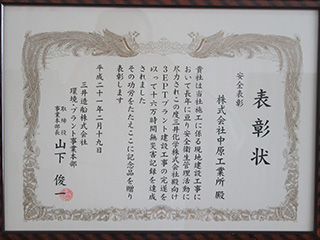 表彰状
安全表彰
株式会社中原工業所 殿
貴社は当社施工に係る現地建設工事に
おいて長年に亘り安全衛生管理活動に
尽力されこの度三井化学株式会社殿向け
3EPTプラント建設工事の完遂を
以って十六万時間無災害記録を達成
されました
その功労をたたえここに記念品を贈り
表彰します
平成二十一年二月十九日
三井造船株式会社
環境・プラント事業本部
取締役
事業本部長
山下 俊一